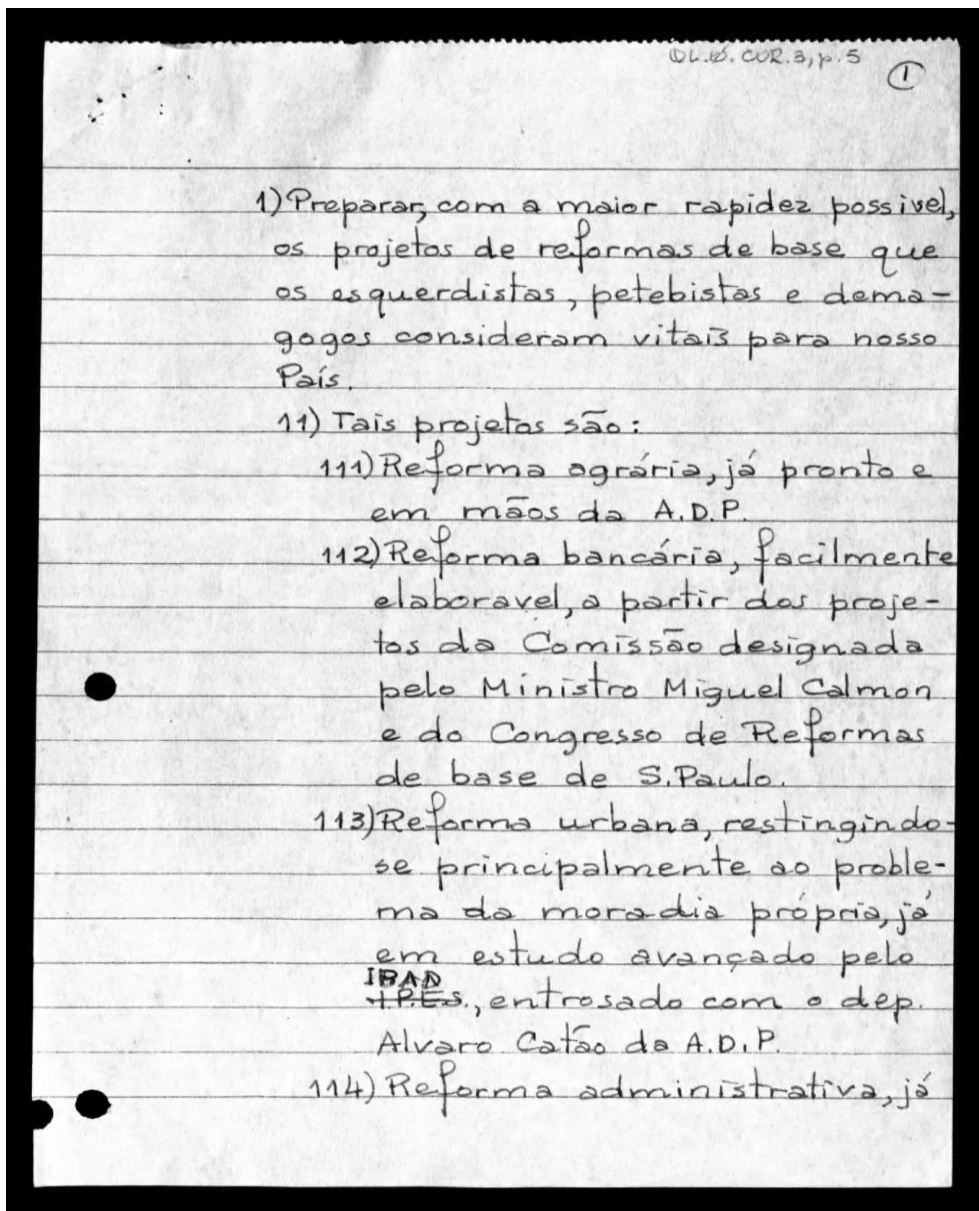 QL.Ø.COR.3, p.5
1
1) Preparar, com a maior rapidez possivel,
os projetos de reformas de base que
os esquerdistas, petebistas e dema-
gogos consideram vitais para nosso
País.
11) Tais projetos são:
111) Reforma agrária, já pronto e
em mãos da A.D.P.
112) Reforma bancária, facilmente
elaboravel, a partir dos proje-
tos da Comissão designada
pelo Ministro Miguel Calmon
e do Congresso de Reformas
de base de S.Paulo.
113) Reforma urbana, restingindo-
se principalmente ao proble-
ma da moradia própria, já
em estudo avançado pelo
IBAD
I.P.E.S., entrosado com o dep.
Alvaro Catão da A.D.P.
114) Reforma administrativa, já